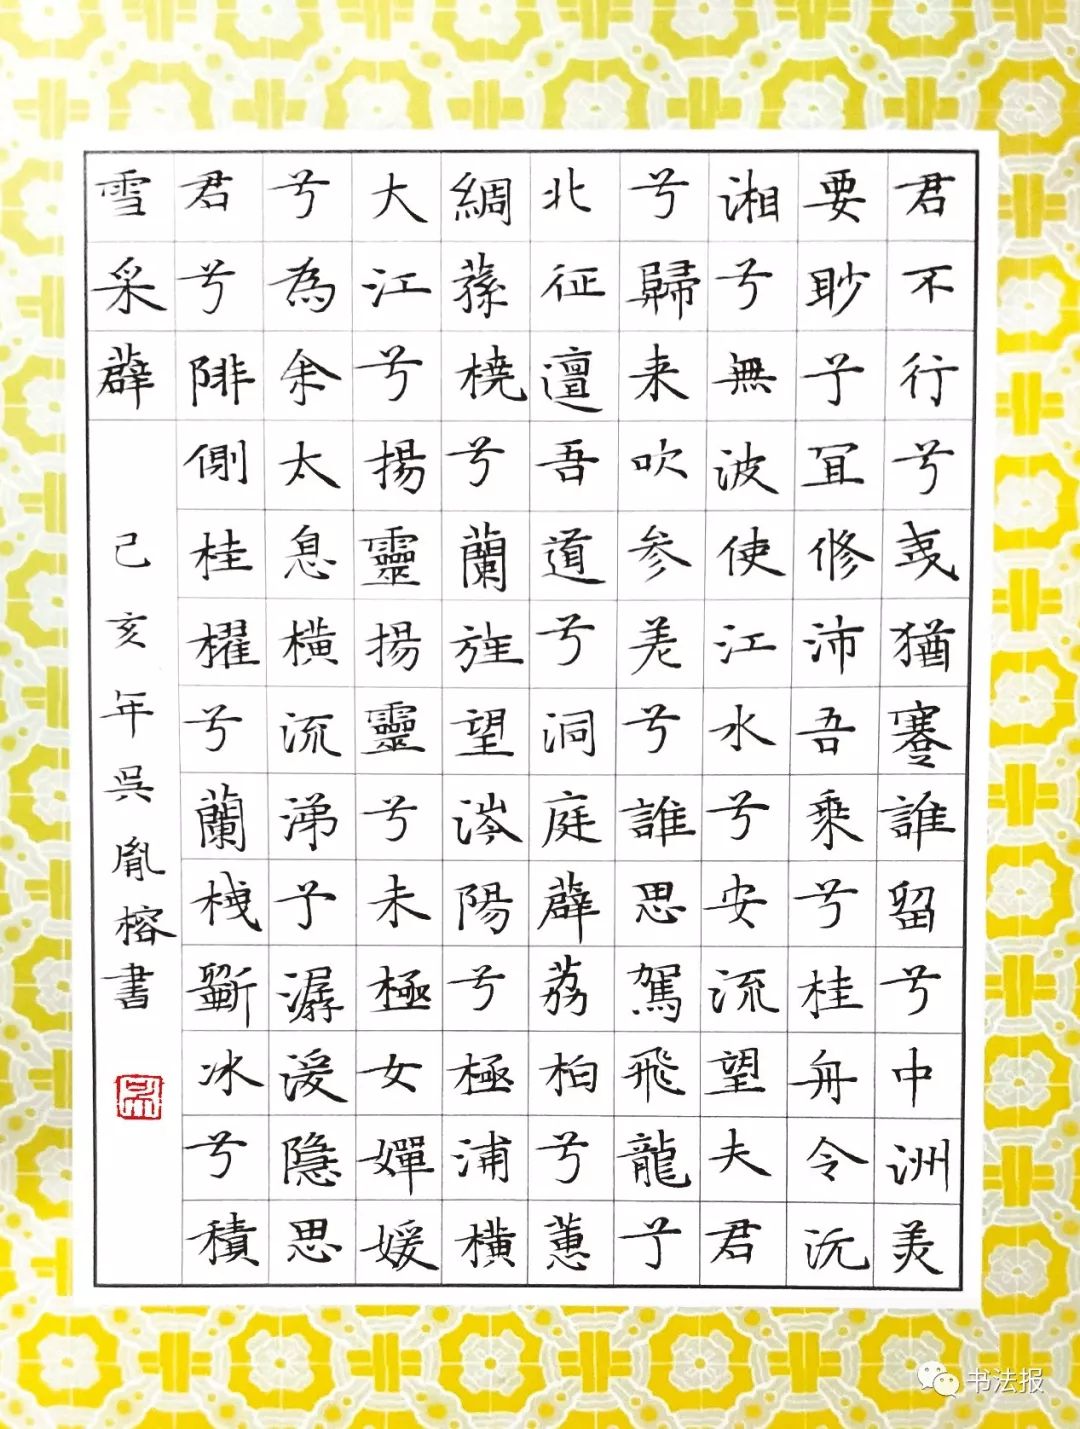 君不行兮夷猶蹇誰留兮中洲美
要眇予冝修沛吾乘兮桂舟令沅
湘兮無波使江水兮安流望夫君
兮歸来吹参差兮誰思駕飛龍兮
北征邅吾道兮洞庭薜荔柏兮蕙
綢蓀橈兮蘭旌望涔陽兮極浦橫
大江兮揚靈揚靈兮未極女嬋媛
兮為余太息橫流涕予潺湲隱思
君兮陫側桂櫂兮蘭枻斲冰兮積
雪采薜
己亥年吳胤榕書
书法报